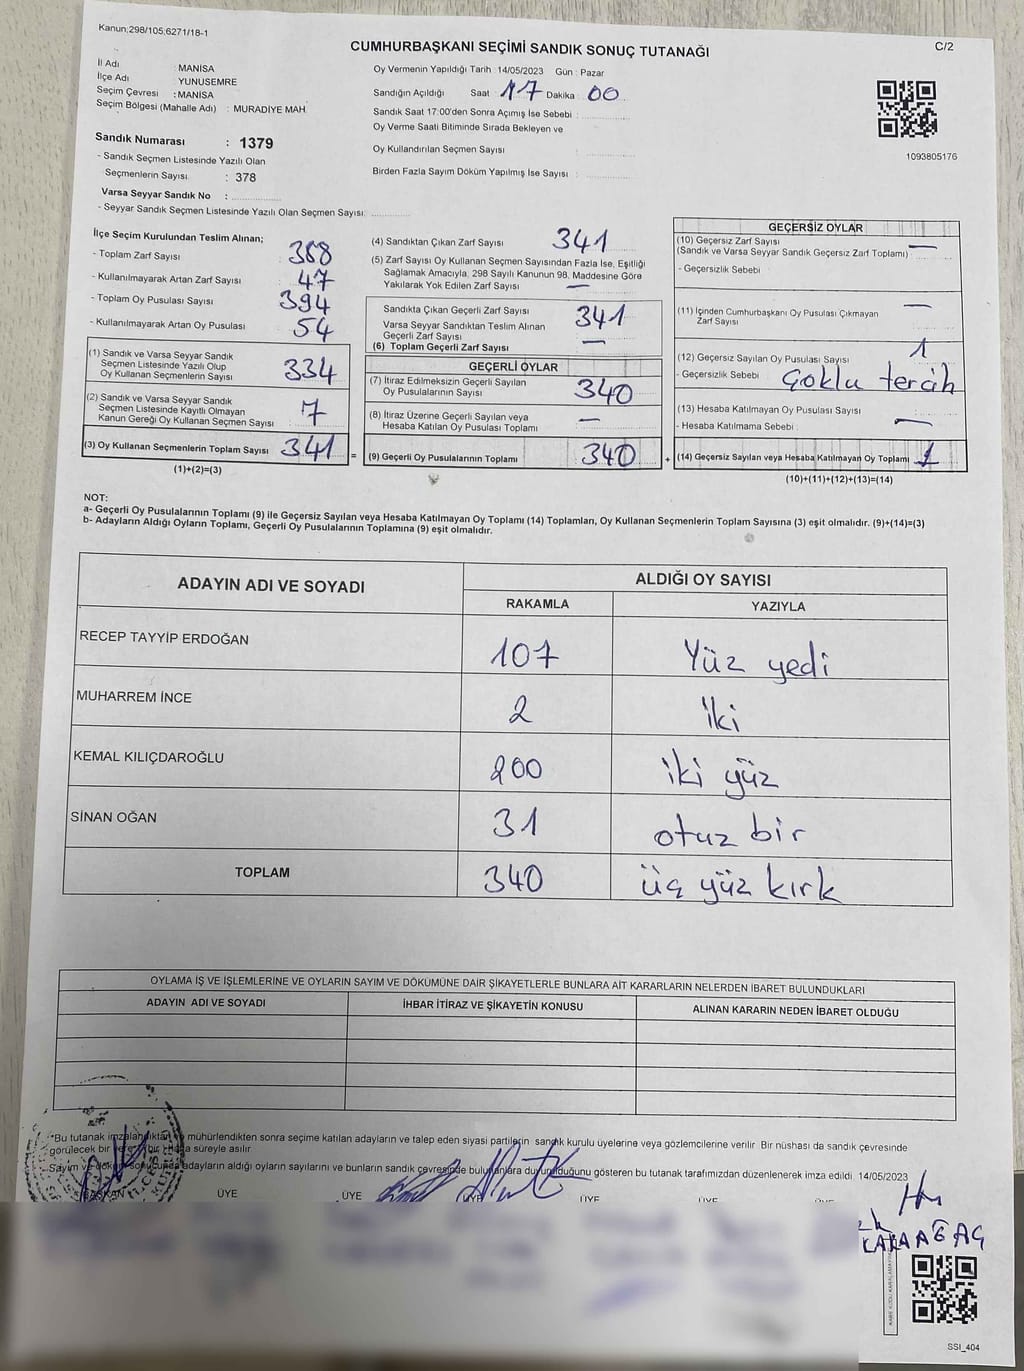 Kanun;298/105;6271/18-1
C/2
CUMHURBAŞKANI SEÇİMİ SANDIK SONUÇ TUTANAĞI
İl Adı : MANİSA
İlçe Adı : YUNUSEMRE
Seçim Çevresi : MANİSA
Seçim Bölgesi (Mahalle Adı) : MURADİYE MAH.
Sandık Numarası : 1379
- Sandık Seçmen Listesinde Yazılı Olan
Seçmenlerin Sayısı : 378
Varsa Seyyar Sandık No :
- Seyyar Sandık Seçmen Listesinde Yazılı Olan Seçmen Sayısı:
Oy Vermenin Yapıldığı Tarih : 14/05/2023 Gün : Pazar
Sandığın Açıldığı Saat 17 Dakika : 00
Sandık Saat 17:00'den Sonra Açımış İse Sebebi :
Oy Verme Saati Bitiminde Sırada Bekleyen ve
Oy Kullandırılan Seçmen Sayısı :
Birden Fazla Sayım Döküm Yapılmış İse Sayısı :
1093805176
İlçe Seçim Kurulundan Teslim Alınan;
- Toplam Zarf Sayısı : 388
- Kullanılmayarak Artan Zarf Sayısı : 47
- Toplam Oy Pusulası Sayısı : 394
- Kullanılmayarak Artan Oy Pusulası : 54
(1) Sandık ve Varsa Seyyar Sandık
Seçmen Listesinde Yazılı Olup
Oy Kullanan Seçmenlerin Sayısı : 334
(2) Sandık ve Varsa Seyyar Sandık
Seçmen Listesinde Kayıtlı Olmayan
Kanun Gereği Oy Kullanan Seçmen Sayısı : 7
(3) Oy Kullanan Seçmenlerin Toplam Sayısı : 341 =
(1)+(2)=(3)
(4) Sandıktan Çıkan Zarf Sayısı : 341
(5) Zarf Sayısı Oy Kullanan Seçmen Sayısından Fazla İse, Eşitliği
Sağlamak Amacıyla, 298 Sayılı Kanunun 98. Maddesine Göre
Yakılarak Yok Edilen Zarf Sayısı : —
Sandıkta Çıkan Geçerli Zarf Sayısı : 341
Varsa Seyyar Sandıktan Teslim Alınan
Geçerli Zarf Sayısı : —
(6) Toplam Geçerli Zarf Sayısı :
GEÇERLİ OYLAR
(7) İtiraz Edilmeksizin Geçerli Sayılan
Oy Pusulalarının Sayısı : 340
(8) İtiraz Üzerine Geçerli Sayılan veya
Hesaba Katılan Oy Pusulası Toplamı : —
(9) Geçerli Oy Pusulalarının Toplamı : 340 +
GEÇERSİZ OYLAR
(10) Geçersiz Zarf Sayısı
(Sandık ve Varsa Seyyar Sandık Geçersiz Zarf Toplamı) : —
- Geçersizlik Sebebi
(11) İçinden Cumhurbaşkanı Oy Pusulası Çıkmayan
Zarf Sayısı : —
(12) Geçersiz Sayılan Oy Pusulası Sayısı : 1
- Geçersizlik Sebebi : Çoklu tercih
(13) Hesaba Katılmayan Oy Pusulası Sayısı :
- Hesaba Katılmama Sebebi : —
(14) Geçersiz Sayılan veya Hesaba Katılmayan Oy Toplamı : 1
(10)+(11)+(12)+(13)=(14)
NOT:
a- Geçerli Oy Pusulalarının Toplamı (9) ile Geçersiz Sayılan veya Hesaba Katılmayan Oy Toplamı (14) Toplamları, Oy Kullanan Seçmenlerin Toplam Sayısına (3) eşit olmalıdır. (9)+(14)=(3)
b- Adayların Aldığı Oyların Toplamı, Geçerli Oy Pusulalarının Toplamına (9) eşit olmalıdır.
ADAYIN ADI VE SOYADI ALDIĞI OY SAYISI
RAKAMLA YAZIYLA
RECEP TAYYİP ERDOĞAN 107 Yüz yedi
MUHARREM İNCE 2 iki
KEMAL KILIÇDAROĞLU 200 iki yüz
SİNAN OĞAN 31 otuz bir
TOPLAM 340 üç yüz kırk
OYLAMA İŞ VE İŞLEMLERİNE VE OYLARIN SAYIM VE DÖKÜMÜNE DAİR ŞİKAYETLERLE BUNLARA AİT KARARLARIN NELERDEN İBARET BULUNDUKLARI
ADAYIN ADI VE SOYADI İHBAR İTİRAZ VE ŞİKAYETİN KONUSU ALINAN KARARIN NEDEN İBARET OLDUĞU
*Bu tutanak imzalandıktan ve mühürlendikten sonra seçime katılan adayların ve talep eden siyasi partilerin sandık kurulu üyelerine veya gözlemcilerine verilir. Bir nüshası da sandık çevresinde
görülecek bir yere bir hafta süreyle asılır.
Sayım ve döküm sonucunda adayların aldığı oyların sayılarını ve bunların sandık çevresinde bulunanlara duyurulduğunu gösteren bu tutanak tarafımızdan düzenlenerek imza edildi. 14/05/2023
BAŞKAN ÜYE ÜYE ÜYE ÜYE ÜYE ÜYE
KARAAĞAÇ
SSI_404